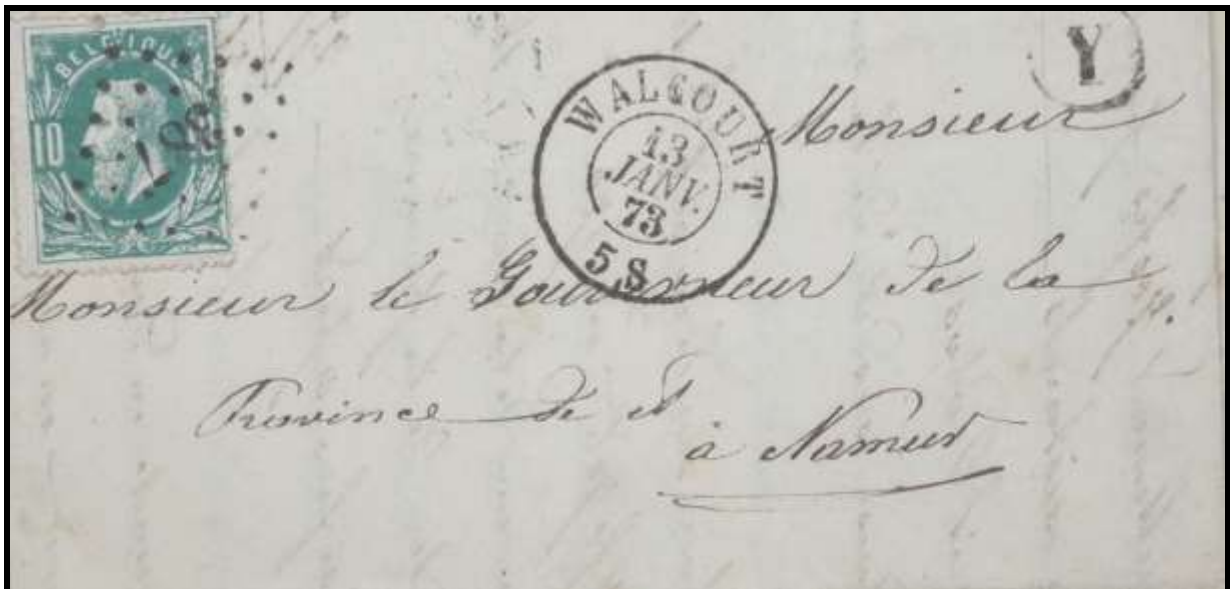 BELGIQUE
10
WALCOURT
13
JANV.
73
5 S
Y
Monsieur
Monsieur le Gouverneur de la
Province de et
à Namur